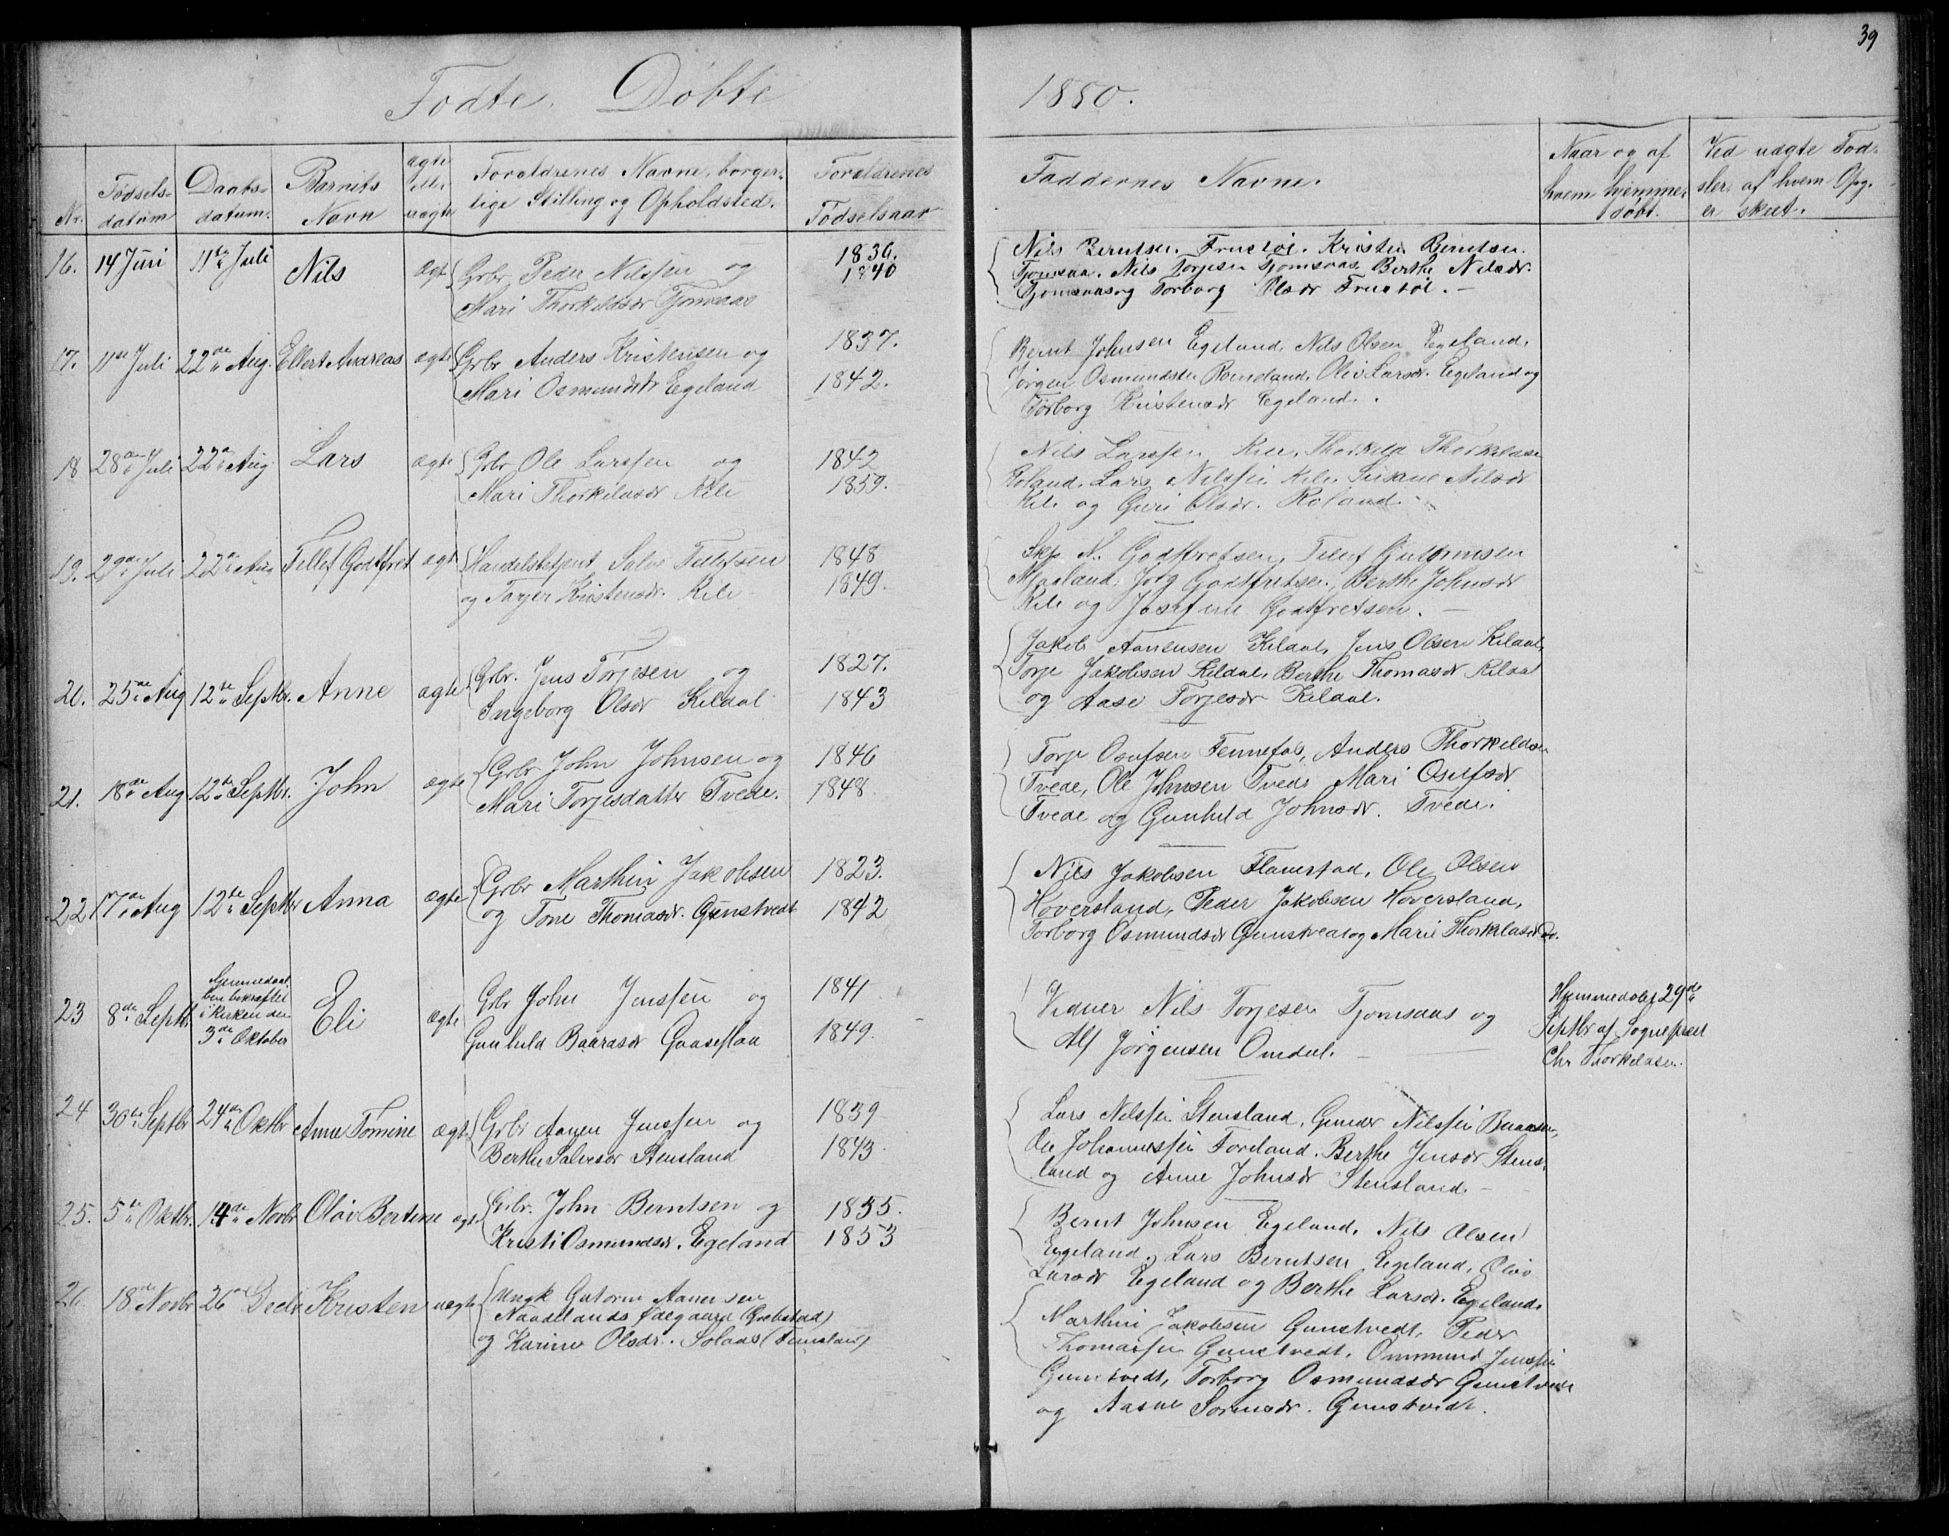 39
Fødte. Døbte 1880.
Nr. Fødsels-datum Daabs-datum. Barnets Navn ægte eller uægte Forældrenes Navne, borger-lige Stilling og Opholdsted. Forældrenes Fødselsaar Faddernes Navne. Naar og af hvem hjemme-døbt. Ved uægte Fød-sler, af hvem Opg. er skeet.
16. 14 Juni 11te Juli Nils ægt
Grbr Peder Nilssen og 1836.
Mari Thorkildsdr Tjomsaas 1840
Nils Berntsen Frustøl. Kristen Berntsen
Tjomsaa. Nils Torjesen Tjomsaas, Berthe Nilsdr.
Tjomsaas og Torborg Olsdr Frustøl. —
17. 11te Juli 22de Aug. Ellert Andreas ægte
Grbr Anders Kristensen og 1837.
Mari Osmundsdr Egeland 1842.
Bernt Johnsen Egeland, Nils Olsen Egeland,
Jørgen Osmundsen Røineland, Oliv Larsdr. Egeland og
Torborg Kristensdr Egeland.
18 28de Juli 22de Aug Lars ægte
Grbr Ole Larssen og 1842
Mari Thorkildsdr Kile 1859.
Nils Larssen Kile, Thorkild Thorkildsen
Roland, Lars Nilssen Kile, Nilsdr
Kile og Guri Olsdr. Roland.
19. 29de Juli 22de Aug Tellef Godtfret ægt
Handelsbetjent Salve Tellefsen 1848
og Torjer Kristensdr. Kile 1849.
Skp N. Godtfretsen, Tellef Guttormsen
Godtfretsen, Berthe Johnsdr
Kile og Josefine Godtfretsen. —
20. 25de Aug 12te Septbr. Anne ægte
Grbr. Jens Torjesen og 1827.
Ingeborg Olsdr Kildal 1843
Jakob Aanensen Kildal, Jens Olsen Kildal,
Torje Jakobsen Kildal, Berthe Thomasdr Kildal
og Aase Torjesdr Kildal.
21. 18de Aug 12te Septbr. John ægte
Grbr. John Johnsen og 1846
Mari Torjesdatter Tvede. 1848
Torje Osufsen Tennefos, Anders Thorkildsen
Tvede, Ole Johnsen Tvede Mari Osufsdr
Tvede og Gunhild Johnsdr. Tvede.
22 17de Aug 12te Septbr Anna ægte
Grbr Marthin Jakobsen 1823.
og Tone Thomasdr. Gunstvedt 1842
Nils Jakobsen Flanestad, Ole Olsen
Hoversland, Peder Jakobsen Hoversland,
Torborg Osmundsdr Gunstvedt og Marie Thorkildsdr do.
23 8de Septbr. Hjemmedaaben bekræftet i Kirken den 3de Oktober Eli ægte
Grbr John Jenssen og 1841
Gunhild Baarasdr Gaaseflaa 1849.
Vidner Nils Torjesen Tjomsaas og
Alf Jørgensen Omdal. —
Hjemmedøbt 29de
Septbr af Sognepræst
Chr Thorkildsen.
24 30te Septbr 24de Oktbr Anne Tomine ægte
Grbr Aanen Jenssen og 1839
Berthe Salvesdr Stensland 1843
Lars Nilssen Stensland, Gunder Nilssen
Ole Johannessen Fordland, Berthe Jensdr Stens-
land og Anne Johnsdr Stensland —
25. 5te Oktbr. 14de Novbr Oliv Bertine ægte
Grbr. John Berntsen og 1855.
Kristi Osmundsdr. Egeland 1853
Bernt Johnsen Egeland, Nils Olsen
Egeland, Lars Berntsen Egeland, Oliv
Larsdr Egeland og Berthe Larsdr. Egeland.
26. 18de Novbr 26de Decbr Kristen uægte
Ungk Gutorm Aanensen
Naadlands Ødegaard (Grebstad)
og Karine Olsdr. Solaas
Marthin Jakobsen Gunstvedt, Peder
Thomassen Gunstvedt, Ommund Jenssen
Gunstvedt, Torborg Osmundsdr Gunstvedt
og Aasne Sørensdr. Gunstvedt.